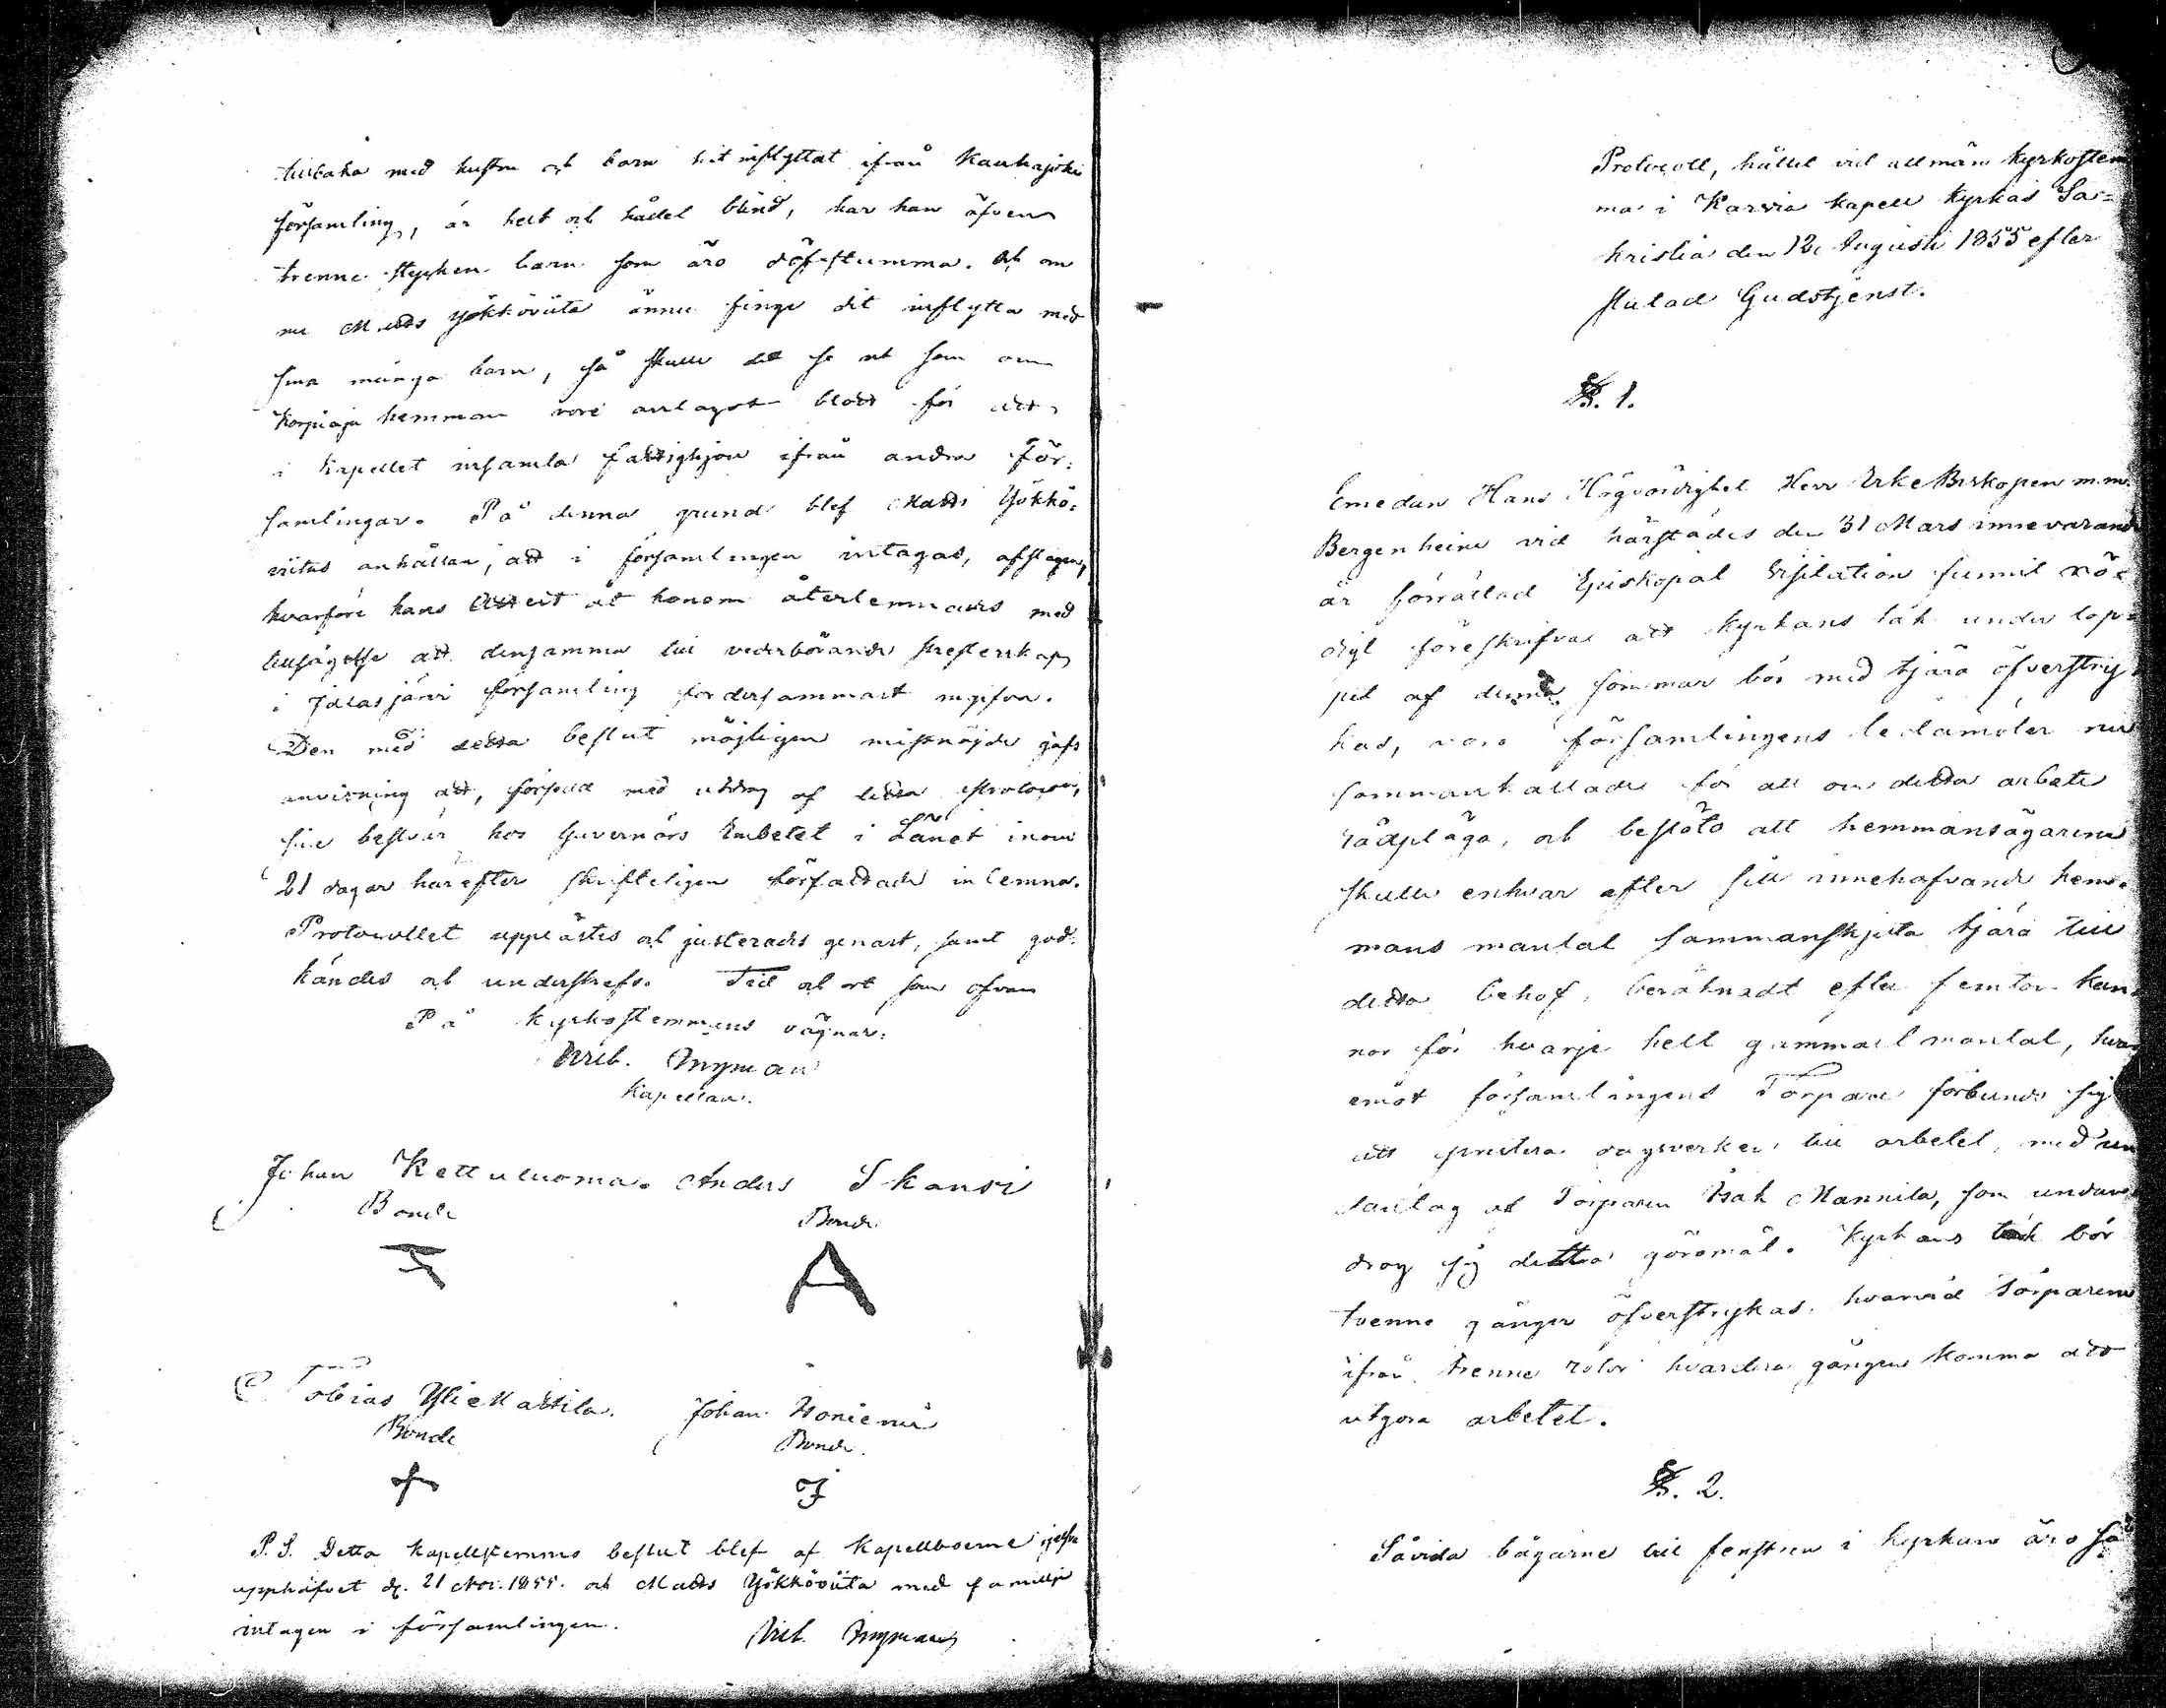 tillbaka med hustru och barn hit inflyttat ifrån Kauhajoki
församling, är helt och hållet blind, har han äfven
trenne stycken barn som äro döfstumma. Och om
nu Matts Yökköviita ännu finge dit inflytta med
sina många barn, så skulle det se ut som om
hemman vore anlagot blott för att
i kapellet insamla fattighjon ifrån andra För-
samlingar. På denna grund blef Matts Yökkö-
viitas anhållan, att i församlingen intagas, afslagen,
hvarföre hans Attest åt honom återlemnades med
tillsägelse att densamma till vederbörande Presterskap
i Jalasjärvi församling fordersammast ingifva.
Den med detta beslut möjligen missnöjde gafs
anvisning att, försedd med utdrag af detta Protocoll,
sine besvär hos Guvernörs Embetet i Länet inom
21 dagar härefter skrifteligen författade inlemna.
Protocollet upplästes och justerades genast, samt god-
kändes och underskrefs. Tid och ort som ofvan
På Kyrkostemmans vägnar:
Wilh. Nyman
Kapellan.
Johan Kettuluoma. Anders Skansi
Bonde Bonde
A
Tobias YliMattila. Johan Honiemi
Bonde Bonde.
J
P.S. Detta kapellstemmo beslut blef af Kapellboerne sjelfva
upphäfvet d. 21 Nov. 1855. och Matts Yökköviita med familje
intagen i församlingen. Wilh. Nyman
Protocoll, hållet vid allmän kyrkostem
ma i Karvia kapell kyrkas Sa-
kristia den 12 Augusti 1855 efter
slutad Gudstjenst.
§. 1.
Emedan Hans Högvördighet Herr ErkeBiskopen m.m.
Bergenheim vid härstädes den 31 Mars innevarande
år förrättad Episkopal Visitation funnit nö-
digt föreskrifva att kyrkans tak under lop-
pet af denna sommar bör med tjära öfverstry-
kas, voro församlingens ledamöter nu
sammankallade för att om detta arbete
rådpläga, och beslöts att hemmansägarena
skulle enhvar efter sitt innehafvande hem-
mans mantal sammanskjuta tjära till
detta behof, beräknadt efter femton kan-
nor för hvarje helt gammalt mantal, hvar
emot församlingens Torpare förbundo sig
att prestera dagsverken till arbetet, med un
dantag af Torparen Isak Mannila, som undan
drog sig detta göromål. Kyrkans tak bör
tvenne gånger öfverstrykas, hvarvid Torparena
ifrån trenne rotor hvardera gången komma att
utgöra arbetet.
§. 2.
Såvida bågarne till fenstren i kyrkan äro så